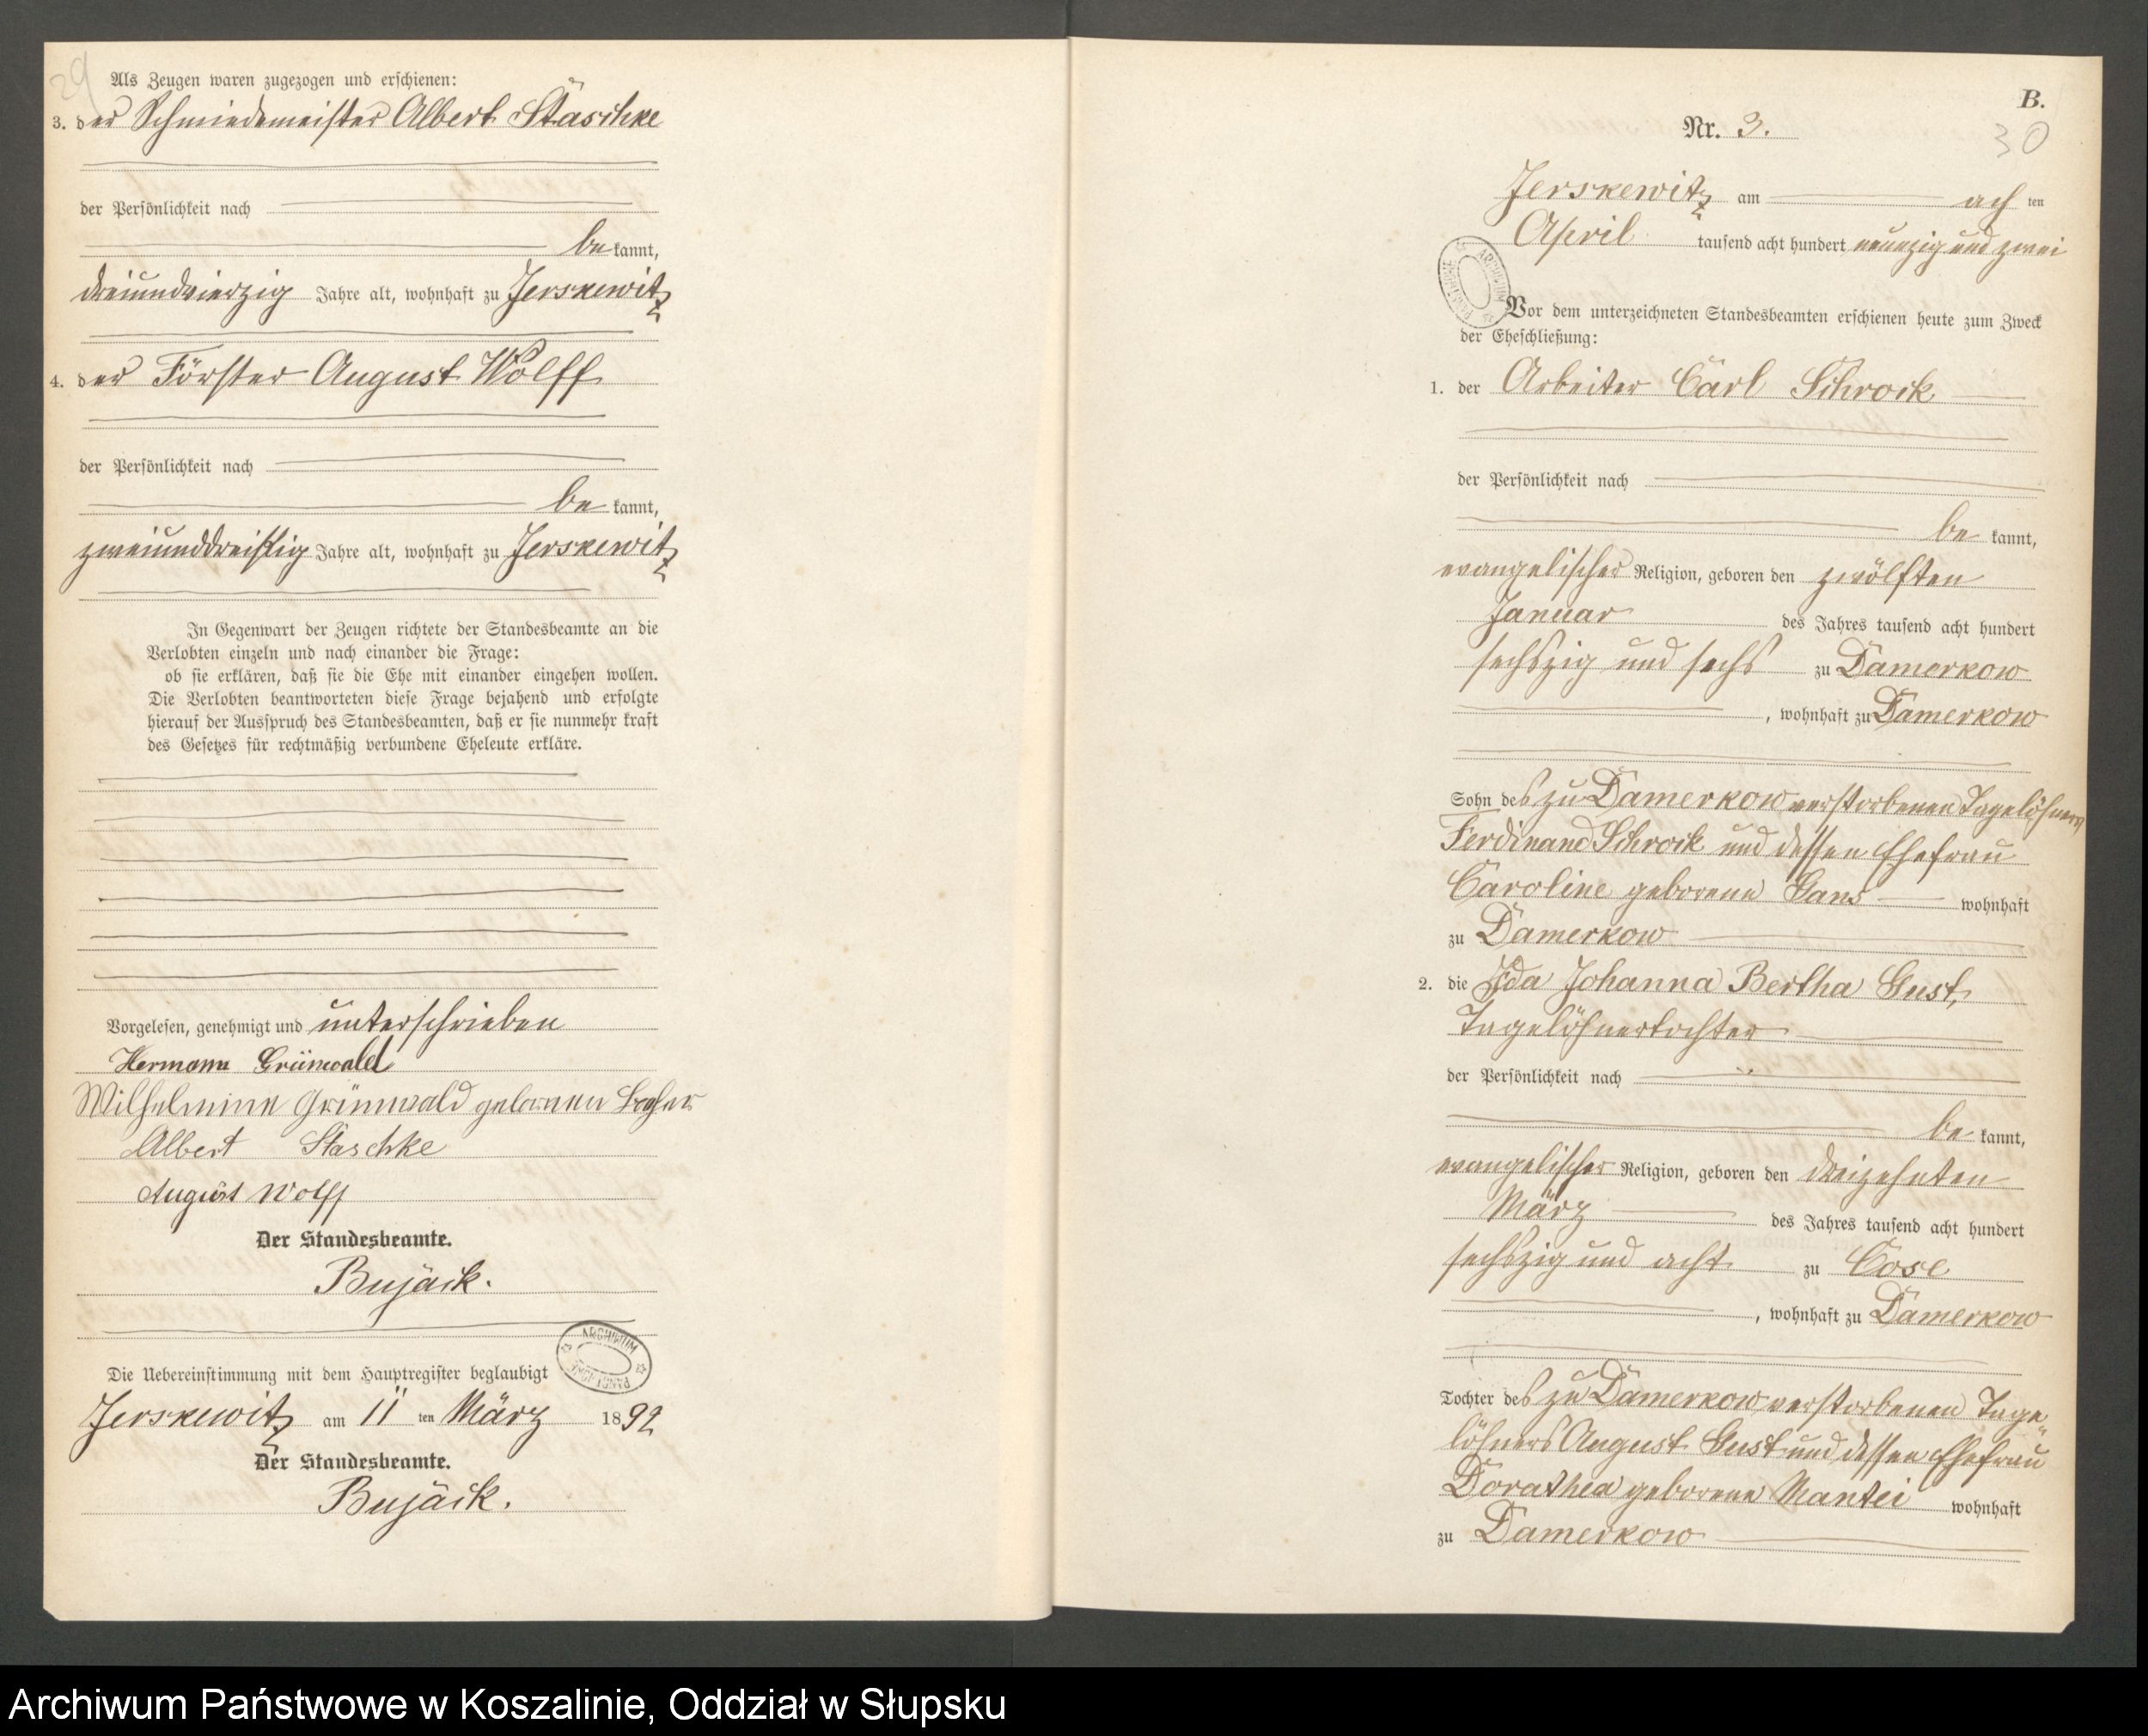 29
Als Zeugen waren zugezogen und erschienen:
3. der Schmiedemeister Albert Staschke
der Persönlichkeit nach
be kannt,
dreiundvierzig Jahre alt, wohnhaft zu Jerskewitz
4. der Förster August Wolff
der Persönlichkeit nach
be kannt,
zweiunddreißig Jahre alt, wohnhaft zu Jerskewitz
In Gegenwart der Zeugen richtete der Standesbeamte an die
Verlobten einzeln und nach einander die Frage:
ob sie erklären, daß sie die Ehe mit einander eingehen wollen.
Die Verlobten beantworteten diese Frage bejahend und erfolgte
hierauf der Ausspruch des Standesbeamten, daß er sie nunmehr kraft
des Gesetzes für rechtmäßig verbundene Eheleute erkläre.
Vorgelesen, genehmigt und unterschrieben
Hermann Grünwald
Wilhelmine Grünwald geborenen
Albert Staschke
August Wolff
Der Standesbeamte.
Bujack.
ARCHIWUM
Die Uebereinstimmung mit dem Hauptregister beglaubigt
Jerskewitz am 11 ten März 1892
Der Standesbeamte.
Bujack.
B.
30
Nr. 3.
Jerskewitz am ach ten
April tausend acht hundert neunzig und zwei
ARCHIWUM PAŃSTWOWE
Vor dem unterzeichneten Standesbeamten erschienen heute zum Zweck
der Eheschließung:
1. der Arbeiter Carl Schrock
der Persönlichkeit nach
be kannt,
evangelischer Religion, geboren den zwölften
Januar des Jahres tausend acht hundert
sechszig und sechs zu Damerkow
, wohnhaft zu Damerkow
Sohn des zu Damerkow verstorbenen Tagelöhners
Ferdinand Schrock und dessen Ehefrau
Caroline geborene Gans wohnhaft
zu Damerkow
2. die Ida Johanna Bertha Gust,
Tagelöhnertochter
der Persönlichkeit nach
be kannt,
evangelischer Religion, geboren den dreizehnten
März des Jahres tausend acht hundert
sechszig und acht zu Cose
, wohnhaft zu Damerkow
Tochter des zu Damerkow verstorbenen Tage„
löhners August Gust und dessen Ehefrau
Dorathea geborene Mantei wohnhaft
zu Damerkow
Archiwum Państwowe w Koszalinie, Oddział w Słupsku